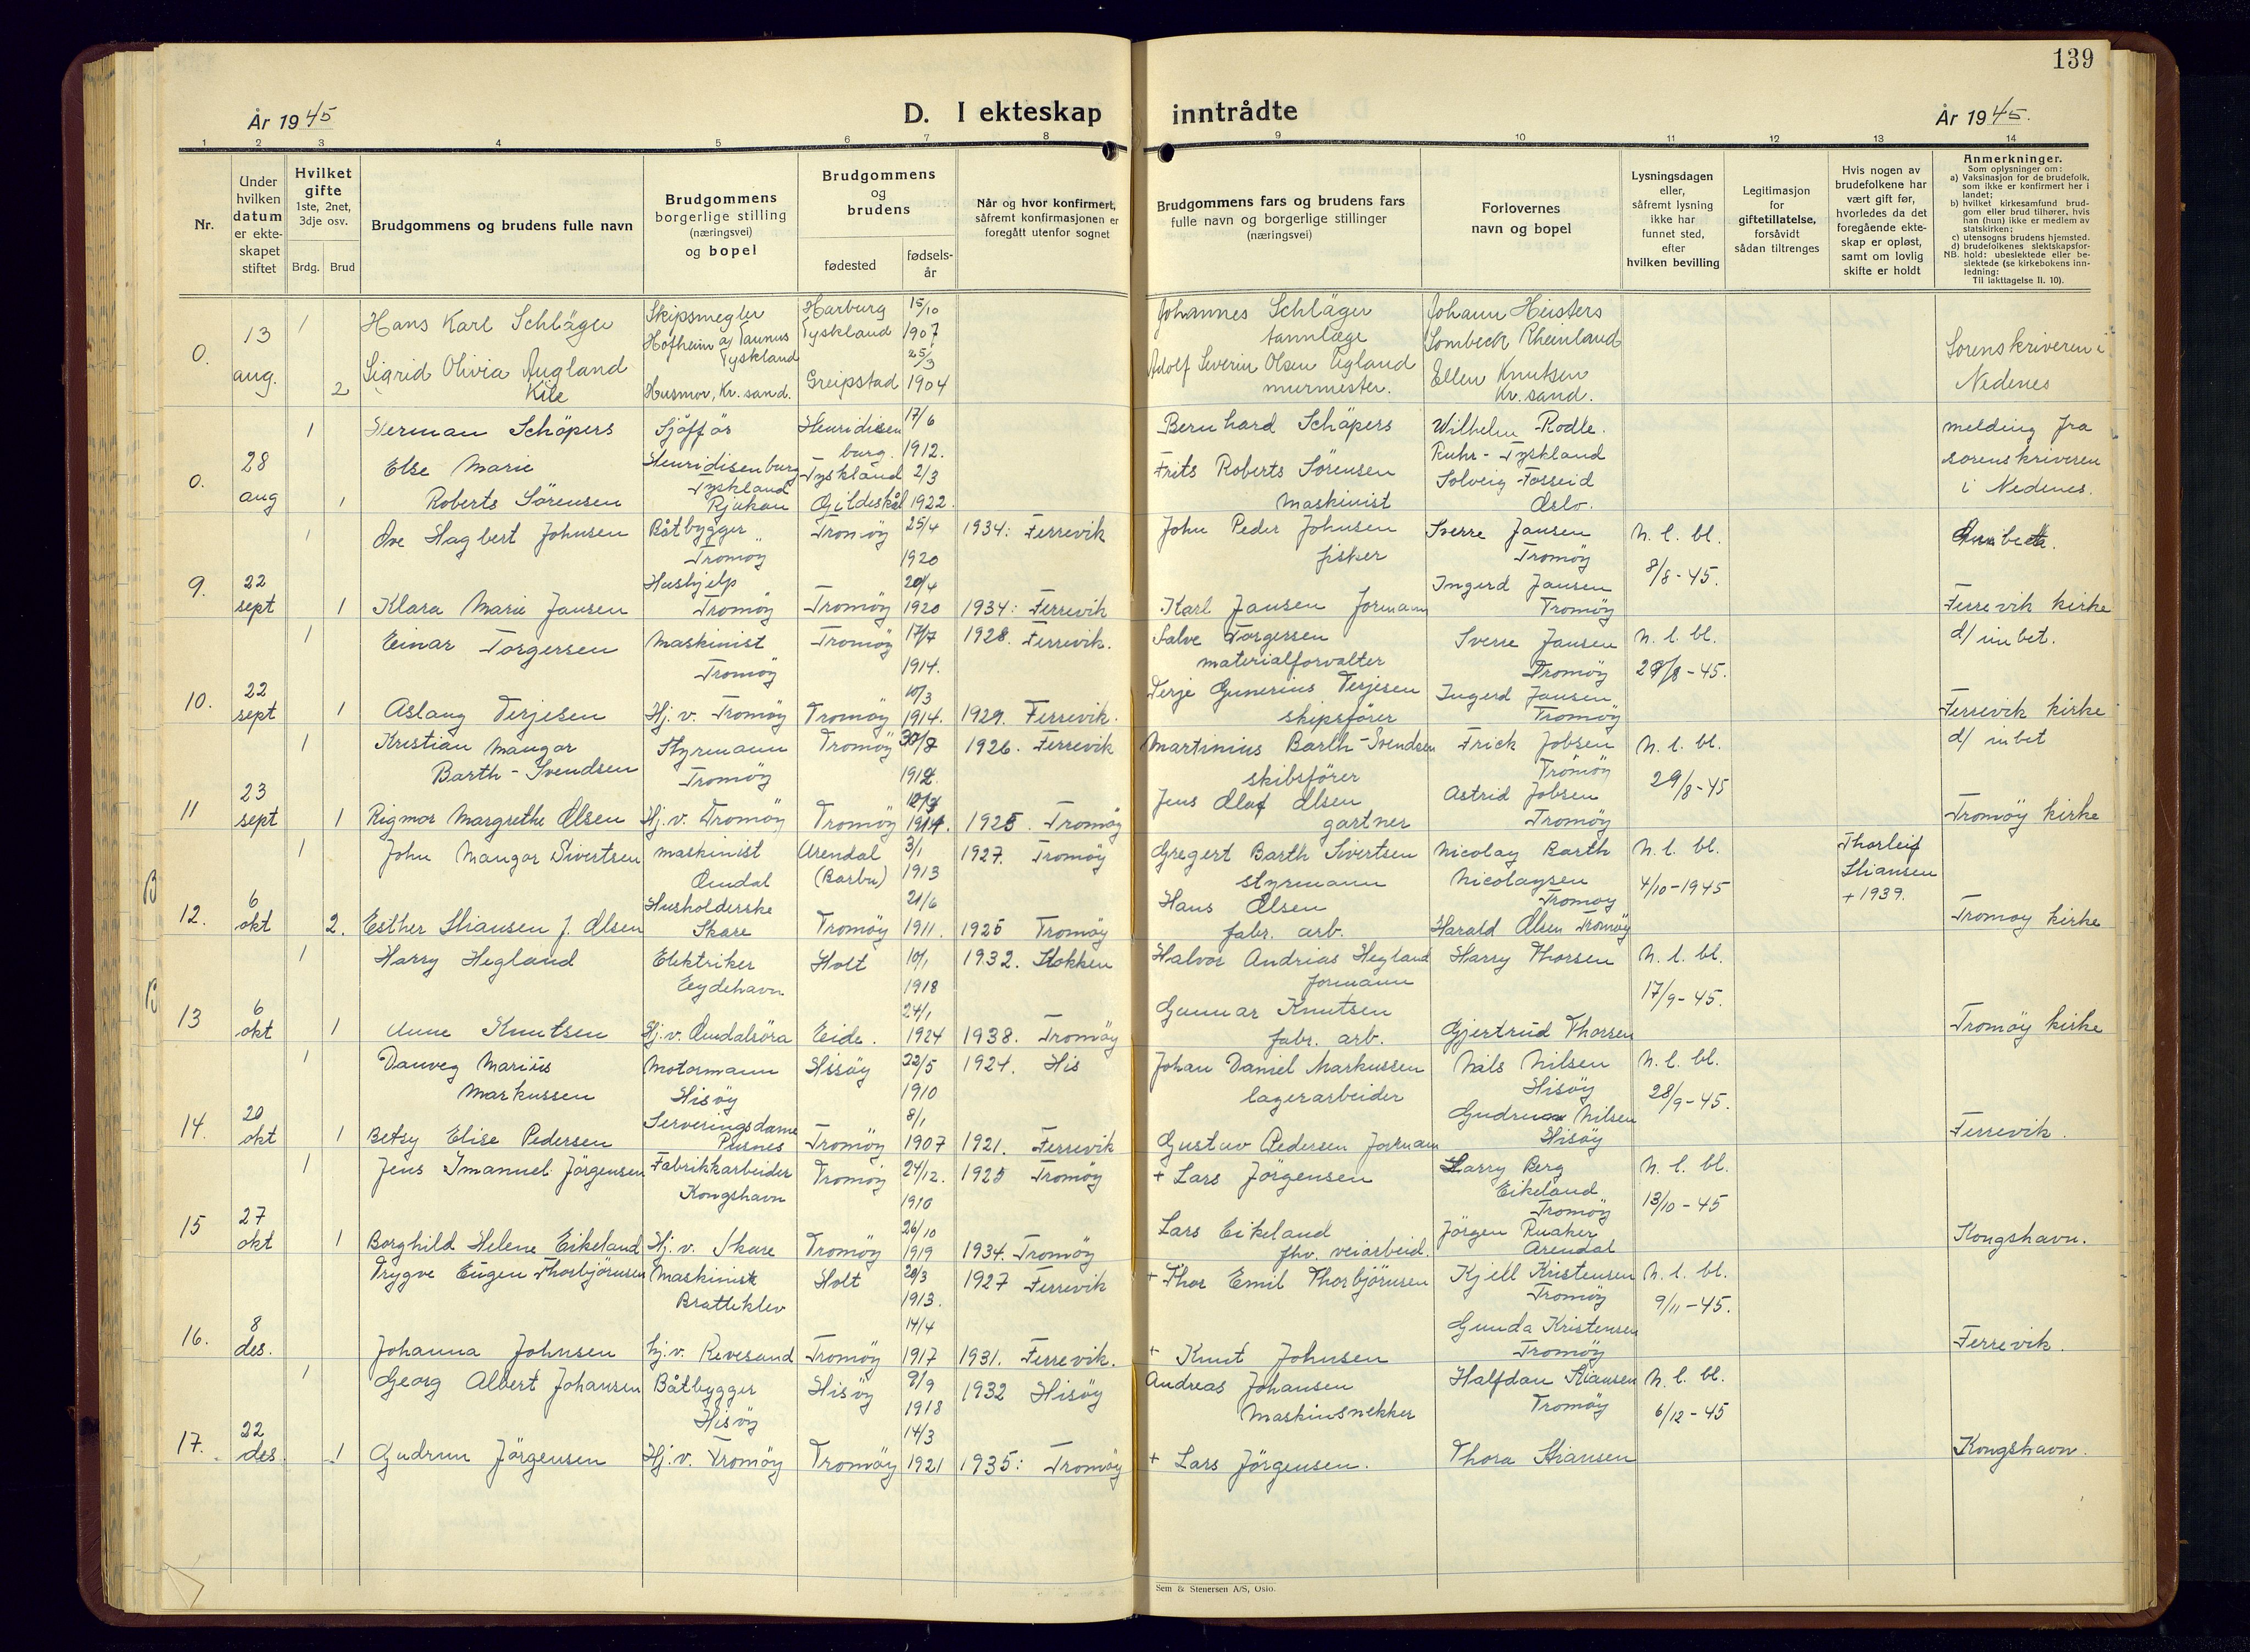 139
År 1945
D. I ekteskap inntrådte
År 1945.
1 2 3 4 5 6 7 8 9 10 11 12 13 14
Nr.
Under hvilken datum er ekteskapet stiftet
Hvilket gifte 1ste, 2net, 3dje osv.
Brdg. Brud
Brudgommens og brudens fulle navn
Brudgommens borgerlige stilling (næringsvei) og bopel
Brudgommens og brudens
fødested
fødselsår
Når og hvor konfirmert, såfremt konfirmasjonen er foregått utenfor sognet
Brudgommens fars og brudens fars fulle navn og borgerlige stillinger (næringsvei)
Forlovernes navn og bopel
Lysningsdagen eller, såfremt lysning ikke har funnet sted, efter hvilken bevilling
Legitimasjon for giftetillatelse, forsåvidt sådan tiltrenges
Hvis nogen av brudefolkene har vært gift før, hvorledes da det foregående ekteskap er opløst, samt om lovlig skifte er holdt
Anmerkninger.
Som oplysninger om:
a) Vaksinasjon for de brudefolk, som ikke er konfirmert her i landet;
b) hvilket kirkesamfund brudgom eller brud tilhører, hvis han (hun) ikke er medlem av statskirken;
c) utensogns brudens hjemsted.
d) brudefolkenes slektskapsforhold: ubeslektede eller beslektede (se kirkebokens innledning:
NB. Til iakttagelse li. 10).
0. 13 aug. 1 Hans Karl Schläger Skipsmegler Hofheim a/ Taunus Tyskland Harburg Tyskland 15/10 1907 Johannes Schläger tannlæge Johann Heisters Sombeck Rheinland Sorenskriveren i Nedenes
2 Sigrid Olivia Augland Kile Husmor, Kr.sand. Greipstad 25/3 1904 Adolf Severin Olsen Ugland murmester. Ellen Knutsen Kr.sand.
0. 28 aug 1 Herman Schöpers Sjåffør Henridisenburg Tyskland Henridisenburg. Tyskland 17/6 1912. Bernhard Schäpers Wilhelm Rodle. Ruhr - Tyskland melding fra sorenskriveren i Nedenes.
1 Else Marie Roberts Sörensen Rjukan Gildeskål 2/3 1922. Frits Roberts Sörensen Maskinist Solveig Fosseid Oslo.
9. 22 sept 1 Ove Hagbert Johnsen Båtbygger Tromöy Tromöy 25/4 1920 1934: Færrevik John Peder Johnsen fisker Sverre Jansen Tromöy N. l. bl. 8/8-45.
1 Klara Marie Jansen Hushjelp Tromöy Tromöy 20/4 1920 1934: Færrevik Karl Jansen formann Ingerd Jansen Tromöy Færrevik kirke
10. 22 sept 1 Einar Torgersen Maskinist Tromöy Tromöy 17/7 1914. 1928. Færrevik. Salve Torgersen materialforvalter Sverre Jansen Tromöy N. l. bl. 28/8-45. d/ inbet.
1 Aslaug Terjesen Hj. v. Tromöy Tromöy 10/3 1914. 1929. Færrevik. Terje Gunerius Terjesen skipsfører Ingerd Jansen Tromöy Færrevik kirke
11 23 sept 1 Kristian Mangor Barth-Svendsen Styrmann Tromöy Tromöy 1912. 1926. Færrevik Martinius Barth-Svendsen skibsfører Frick Jobsen Tromöy N. l. bl. 29/8-45 d/ inbet
1 Rigmor Margrethe Olsen Hj. v. Tromöy Tromöy 1914. 1928. Tromöy Jens Olaf Olsen gartner Astrid Jobsen Tromöy Tromöy kirke
B 12. 6 okt 1 John Mangor Sivertsen maskinist Omdal Arendal (Barbu) 3/1 1913 1927. Tromöy Gregert Barth Sivertsen styrmann Nicolay Barth Nicolaysen Tromöy N. l. bl. 4/10-1945 Thorleif Stiansen + 1939.
2. Esther Stiansen f. Olsen Husholderske Skare Tromöy 21/6 1911. 1925 Tromöy Hans Olsen fabr. arb. Harald Olsen Tromöy Tromöy kirke
B 13 6 okt 1 Harry Hegland Elektriker Eydehavn Holt 10/1 1918 1932. Stokken Halvor Andrias Hegland formann Harry Thorsen N. l. bl. 17/9-45.
1 Anne Knutsen Hj. v. Omdalsöra Eide. 24/1 1924 1938. Tromöy Gunnar Knutsen fabr. arb. Gjertrud Thorsen Tromöy kirke
14. 20 okt 1 Danveg Marius Markussen Motormann Hisöy Hisöy 22/5 1910 1924. His Johan Daniel Markussen lagerarbeider Nils Nilsen Hisöy N. l. bl. 28/9-45.
1 Betsy Elise Pedersen Serveringsdame Pusnes Tromöy 8/1 1907 1921. Færrevik Gustav Pedersen formann Gudrun Nilsen Hisöy Færrevik.
15 27 okt 1 Jens Imanuel Jörgensen Fabrikkarbeider Kongshavn Tromöy 24/12. 1910 1925 Tromöy + Lars Jörgensen Harry Berg Eikeland Tromöy N. l. bl. 13/10-45
1 Borghild Helene Eikeland Hj. v. Skare Tromöy 26/10 1919 1934. Tromöy Lars Eikeland fhv. veiarbeid. Jörgen Ruaker Arendal Kongshavn.
16. 8 des. Trygve Eugen Thorbjörnsen Maskinist Bratteklev Holt 20/3 1913. 1927 Færrevik + Thor Emil Thorbjörnsen Kjell Kristensen Tromöy N. l. bl. 9/11-45.
Johanna Johnsen hj. v. Revesand Tromöy 14/4 1917 1931. Færrevik. + Knut Johnsen Gunda Kristensen Tromöy Færrevik.
17. 22 des. 1 Georg Albert Johansen Båtbygger Hisöy Hisöy 9/9 1918 1932 Hisöy Andreas Johansen Maskinsnekker Halfdan Stiansen Tromöy N. l. bl. 6/12-45
1 Gudrun Jörgensen Hj. v. Tromöy Tromöy 14/3 1921 1935: Tromöy + Lars Jörgensen. Thora Stiansen Kongshavn.
Sem & Stenersen A/S, Oslo.